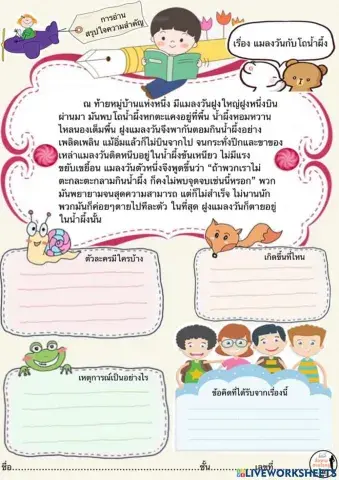 การอ่าน
สรุปใจความสำคัญ
เรื่อง แมลงวันกับโถน้ำผึ้ง
ณ ท้ายหมู่บ้านแห่งหนึ่ง มีแมลงวันฝูงใหญ่ฝูงหนึ่งบิน
ผ่านมา มันพบโถน้ำผึ้งหกตะแคงอยู่ที่พื้น น้ำผึ้งหอมหวาน
ไหลนองเต็มพื้น ฝูงแมลงวันจึงพากันตอมกินน้ำผึ้งอย่าง
เพลิดเพลิน แม้อิ่มแล้วก็ไม่บินจากไป จนกระทั่งปีกและขาของ
เหล่าแมลงวันติดหนึบอยู่ในน้ำผึ้งข้นเหนียว ไม่มีแรง
ขยับเขยื้อน แมลงวันตัวหนึ่งจึงพูดขึ้นว่า "ถ้าพวกเราไม่
ตะกละตะกลามกินน้ำผึ้ง ก็คงไม่พบจุดจบเช่นนี้หรอก" พวก
มันพยายามจนสุดความสามารถ แต่ก็ไม่สำเร็จ ไม่นานนัก
พวกมันก็ค่อยๆตายไปทีละตัว ในที่สุด ฝูงแมลงวันก็ตายอยู่
ในน้ำผึ้งนั้น
ตัวละครมีใครบ้าง
เกิดขึ้นที่ไหน
เหตุการณ์เป็นอย่างไร
ข้อคิดที่ได้รับจากเรื่องนี้
ชื่อ........................ชั้น............เลขที่........
LIVEWORKSHEETS